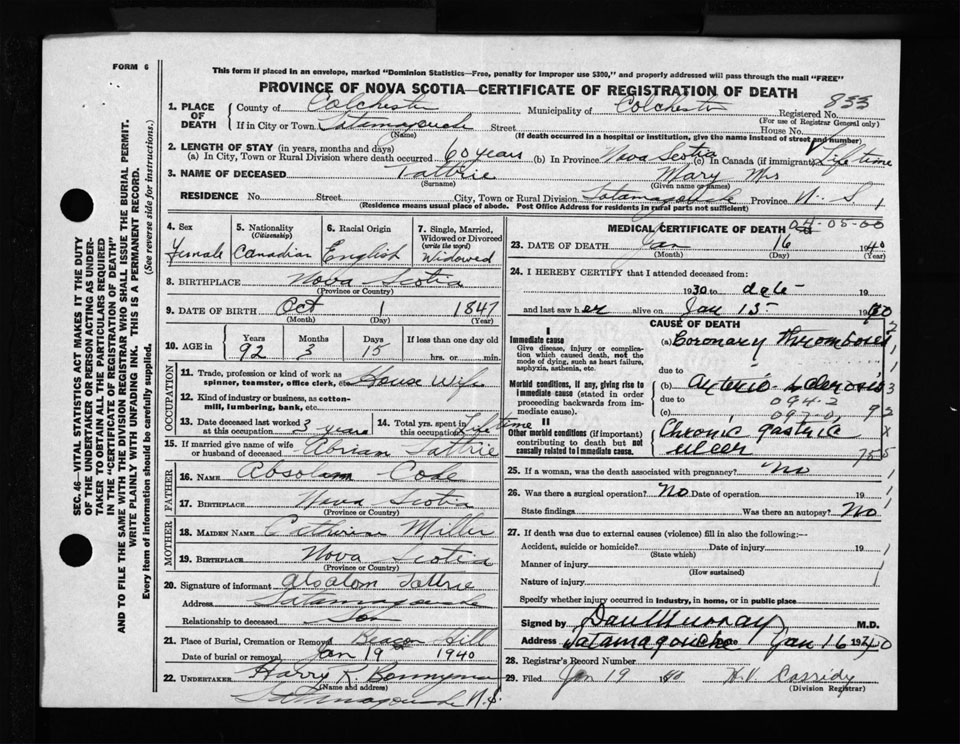 FORM 6
This form if placed in an envelope, marked "Dominion Statistics—Free, penalty for improper use $300," and properly addressed will pass through the mail "FREE"
PROVINCE OF NOVA SCOTIA—CERTIFICATE OF REGISTRATION OF DEATH
1. PLACE OF DEATH County of Colchester Municipality of Colchester Registered No. 855
(For use of Registrar General only)
If in City or Town Tatamagouch Street House No.
(Name) (If death occurred in a hospital or institution, give the name instead of street and number)
2. LENGTH OF STAY (in years, months and days)
(a) In City, Town or Rural Division where death occurred 60 years (b) In Province Nova Scotia (c) In Canada (if immigrant) Life time
3. NAME OF DECEASED Tattrie Mary Mrs
(Surname) (Given name or names)
RESIDENCE No. Street City, Town or Rural Division Tatamagouche Province N. S.
(Residence means usual place of abode. Post Office Address for residents in rural parts not sufficient)
4. Sex Female
5. Nationality (Citizenship) Canadian
6. Racial Origin English
7. Single, Married, Widowed or Divorced (write the word) Widowed
8. BIRTHPLACE Nova Scotia
(Province or Country)
9. DATE OF BIRTH Oct 1 1847
(Month) (Day) (Year)
10. AGE in Years 92 Months 3 Days 15 If less than one day old hrs. or min.
OCCUPATION
11. Trade, profession or kind of work as spinner, teamster, office clerk, etc. House Wife
12. Kind of industry or business, as cotton-mill, lumbering, bank, etc.
13. Date deceased last worked at this occupation 3 years
14. Total yrs. spent in this occupation Life time
15. If married give name of wife or husband of deceased Abrian Tattrie
FATHER
16. NAME Absolam Code
17. BIRTHPLACE Nova Scotia
(Province or Country)
MOTHER
18. MAIDEN NAME Catherine Miller
19. BIRTHPLACE Nova Scotia
(Province or Country)
20. Signature of informant Absalom Tattrie
Address Tatamagouche
Relationship to deceased Son
21. Place of Burial, Cremation or Removal Beacon Hill
Date of burial or removal Jan 19th 1940
22. UNDERTAKER Harry R. Bonnyman
(Name and address)
Tatamagouche N.S.
MEDICAL CERTIFICATE OF DEATH 04-05-00
23. DATE OF DEATH Jan 16 1940
(Month) (Day) (Year)
24. I HEREBY CERTIFY that I attended deceased from:
1930 to date 19
and last saw her alive on Jan 15 1940
CAUSE OF DEATH
I
Immediate cause
Give disease, injury or complication which caused death, not the mode of dying, such as heart failure, asphyxia, asthenia, etc.
(a) Coronary Thromboses
due to
Morbid conditions, if any, giving rise to immediate cause (stated in order proceeding backwards from immediate).
(b) Arterio-sclerosis
due to 094-2
(c) 097-0
II
Other morbid conditions (if important) contributing to death but not causally related to immediate cause.
Chronic gastric ulcer
25. If a woman, was the death associated with pregnancy? No
26. Was there a surgical operation? No Date of operation 19
State findings Was there an autopsy? No
27. If death was due to external causes (violence) fill in also the following:—
Accident, suicide or homicide? Date of injury 19
(State which)
Manner of injury
(How sustained)
Nature of injury
Specify whether injury occurred in industry, in home, or in public place
Signed by Dan Murray M.D.
Address Tatamagouche Date Jan 16 1940
28. Registrar's Record Number
29. Filed Jan 19 1940 Cassidy
(Division Registrar)
SEC. 46—VITAL STATISTICS ACT MAKES IT THE DUTY
OF THE UNDERTAKER OR PERSON ACTING AS UNDER-
TAKER TO OBTAIN ALL THE PARTICULARS REQUIRED
IN THE "CERTIFICATE OF REGISTRATION OF DEATH"
AND TO FILE THE SAME WITH THE DIVISION REGISTRAR WHO SHALL ISSUE THE BURIAL PERMIT.
WRITE PLAINLY WITH UNFADING INK. THIS IS A PERMANENT RECORD.
Every item of information should be carefully supplied. (See reverse side for instructions.)